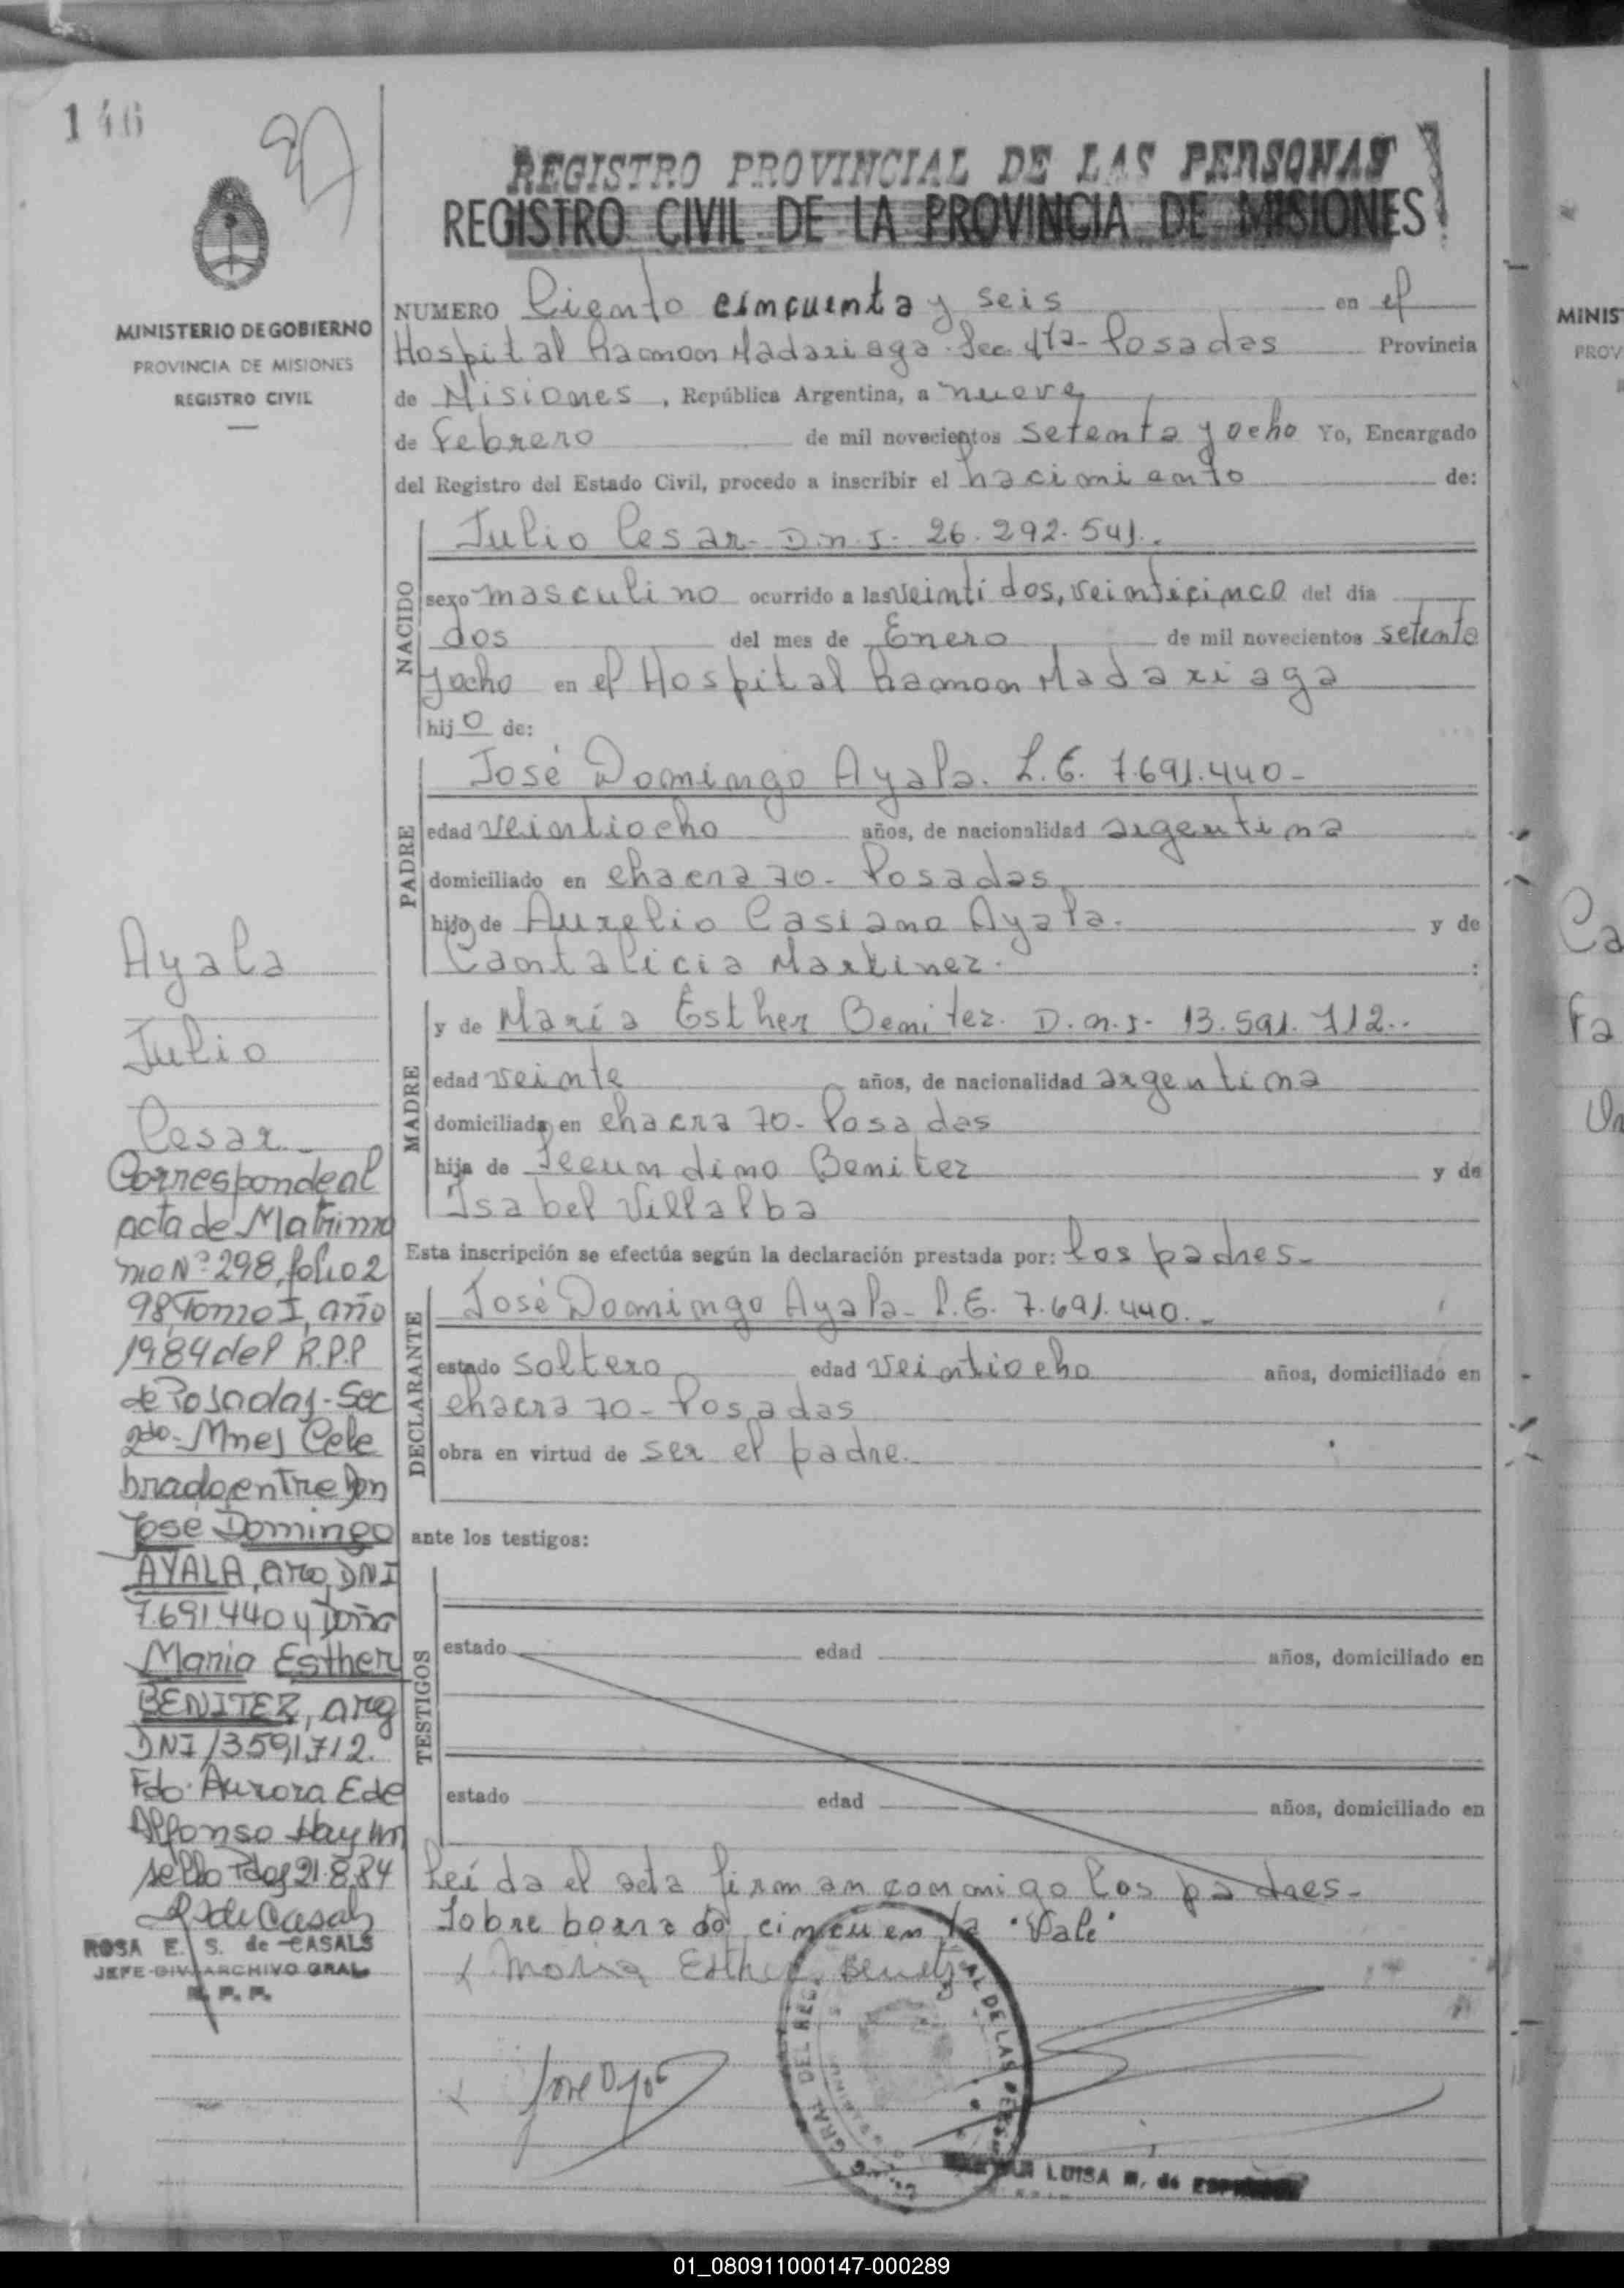 146
REGISTRO PROVINCIAL DE LAS PERSONAS
REGISTRO CIVIL DE LA PROVINCIA DE MISIONES
MINISTERIO DE GOBIERNO
PROVINCIA DE MISIONES
REGISTRO CIVIL
NUMERO Ciento cincuenta y seis en el
Hospital Ramon Madariaga. Sec. 4ta- Posadas Provincia
de Misiones, República Argentina, a nueve
de Febrero de mil novecientos setenta y ocho Yo, Encargado
del Registro del Estado Civil, procedo a inscribir el nacimiento de:
NACIDO
Julio Cesar- D.n.I- 26.292.541..
sexo masculino ocurrido a las veintidos, veinticinco del día
dos del mes de Enero de mil novecientos setenta
y ocho en el Hospital Ramon Madariaga
hijo de:
PADRE
José Domingo Ayala. L.E. 7.691.440-
edad veintiocho años, de nacionalidad argentina
domiciliado en chacra 70- Posadas
hijo de Aurelio Casiano Ayala. y de
Cantalicia Martinez.
MADRE
y de María Esther Benitez. D.n.I- 13.591.712..
edad veinte años, de nacionalidad argentina
domiciliada en chacra 70- Posadas
hija de Secundino Benitez y de
Isabel Villalba
Esta inscripción se efectúa según la declaración prestada por: los padres-
DECLARANTE
José Domingo Ayala- L.E. 7.691.440..-
estado soltero edad veintiocho años, domiciliado en
chacra 70- Posadas
obra en virtud de ser el padre.
ante los testigos:
TESTIGOS
estado edad años, domiciliado en
estado edad años, domiciliado en
Leída el acta firman conmigo los padres-
Sobre borrado cincuenta "Vale"
x Maria Esther Benitez
x
LUISA M. de
Ayala
Julio
Cesar-
Corresponde al
acta de Matrimo
nio Nº 298, folio 2
98, Tomo I, año
1984 del R.P.P
de Posadas-Sec
2do- Mnes Cele
brado entre Don
José Domingo
AYALA, arg, DNI
7.691.440 y Doña
Maria Esther
BENITEZ, arg
DNI 13591712.
Fdo. Aurora E de
Alfonso Hay un
sello Pdas 21.8.84
R de Casals
ROSA E. S. de CASALS
JEFE DIV ARCHIVO GRAL
R. P. P.
MINIS
PROV
Ca
Fa
01_080911000147-000289